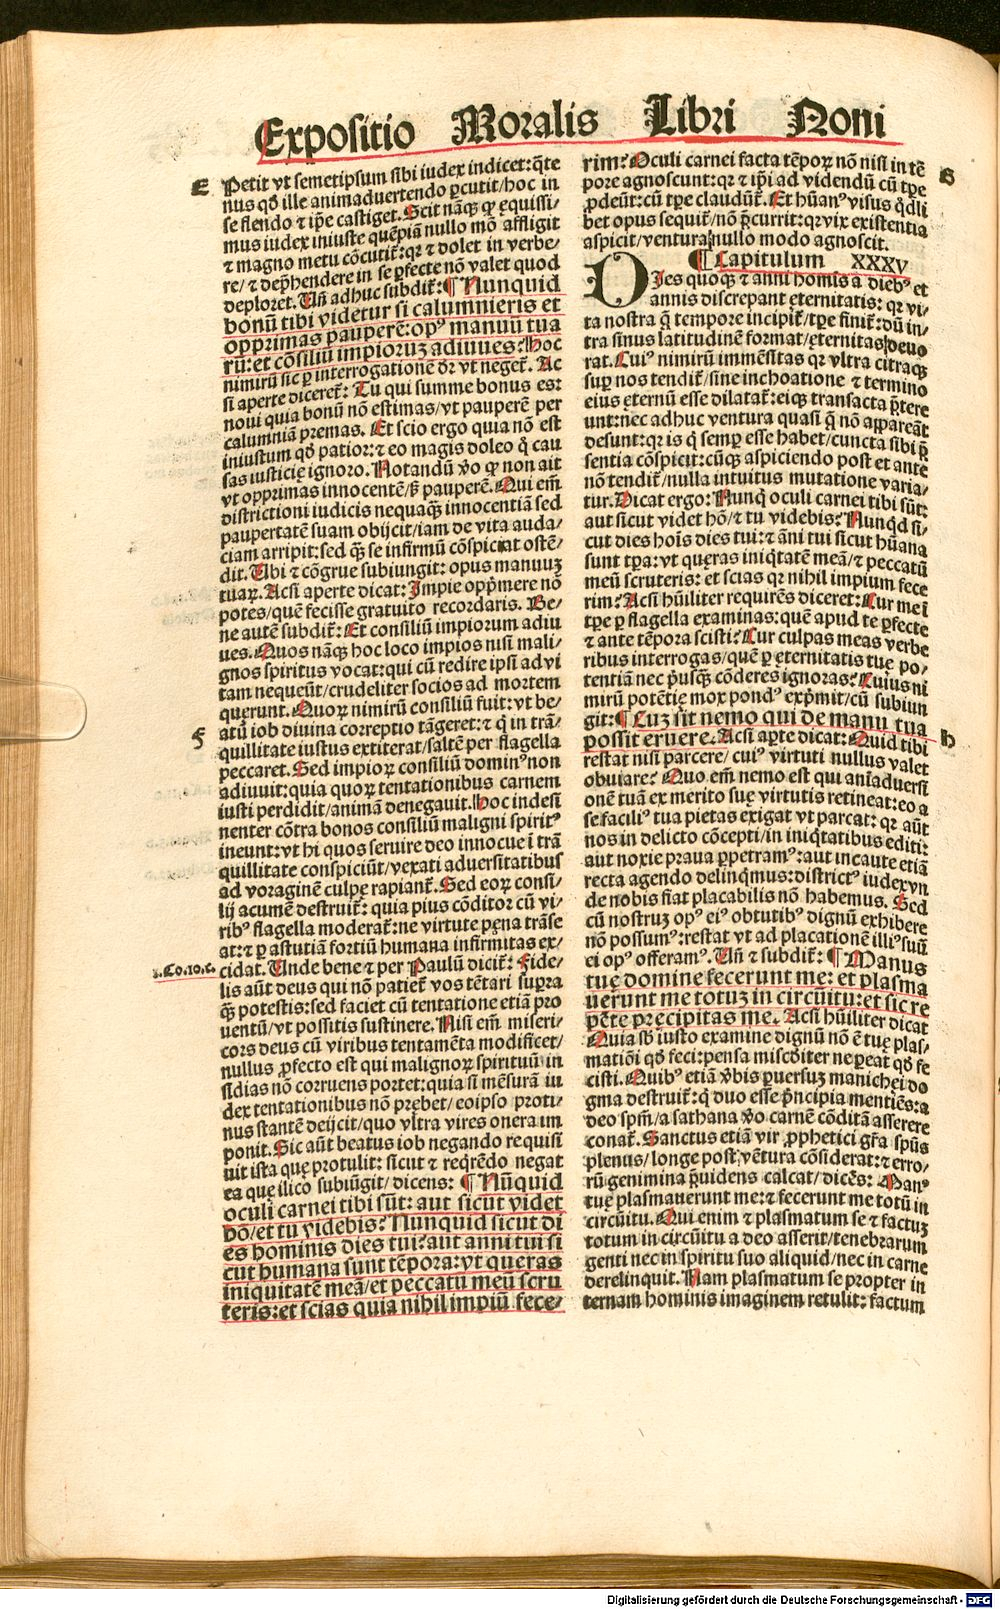 Expositio Moralis Libri Noni
E
Petit vt semetipsum sibi iudex indicet: q̃te
nus qđ ille animaduertendo ꝑcutit/hoc in
se flendo ⁊ ip̃e castiget. Scit nāqꝫ ꝙ ęquissi/
mus iudex iniuste quēpiā nullo mō affligit
⁊ magno metu cōcutit̃: qꝛ ⁊ dolet in verbe/
re/ ⁊ dep̃hendere in se ꝑfecte nō valet quod
deploret. Uñ adhuc subdit̃: ¶ Nunquid
bonū tibi videtur si calumnieris et
opprimas pauperē: opꝰ manuū tua
rū: et cōsiliū impioruꝫ adiuues? Hoc
nimirū sic ꝑ interrogationē dr̃ vt neget̃. Ac
si aperte diceret̃: Tu qui summe bonus es:
noui quia bonū nō estimas/vt pauperē per
calumniā premas. Et scio ergo quia nō est
iniustum qđ patior: ⁊ eo magis doleo q̃ cau
sas iusticię ignoro. Notandū ṽo ꝙ non ait
vt opprimas innocentē/s̃ pauperē. Qui em̃
districtioni iudicis nequaqꝫ innocentiā sed
paupertatē suam obijcit/iam de vita auda/
ciam arripit: sed qꝫ se infirmū cōspiciat ostē/
dit. Ubi ⁊ cōgrue subiungit: opus manuuꝫ
tuaꝝ. Acsi aperte dicat: Impie opp̃mere nō
potes/quē fecisse gratuito recordaris. Be/
ne autē subdit̃: Et consiliū impiorum adiu
ues. Quos nāqꝫ hoc loco impios nisi mali/
gnos spiritus vocat: qui cū redire ipsi ad vi
tam nequeūt/crudeliter socios ad mortem
querunt. Quoꝝ nimirū consiliū fuit: vt be/
F
atū iob diuina correptio tāgeret: ⁊ q̃ in trā/
quillitate iustus extiterat/saltē per flagella
peccaret. Sed impioꝝ consiliū dominꝰ non
adiuuit: quia quoꝝ tentationibus carnem
iusti perdidit/animā denegauit. Hoc indesi
nenter cōtra bonos consiliū maligni spiritꝰ
ineunt: vt hi quos seruire deo innocue ī trā
quillitate conspiciūt/vexati aduersitatibus
ad voraginē culpę rapiant̃. Sed eoꝝ consi/
lij acumē destruit̃: quia pius cōditor cū vi/
ribꝰ flagella moderat̃: ne virtute pęna trāse
at: ⁊ ꝑ astutiā fortiū humana infirmitas ex/
1. Co. 10. c.
cidat. Unde bene ⁊ per Paulū dicit̃: Fide/
lis aūt deus qui nō patiet̃ vos tētari supra
qꝫ potestis: sed faciet cū tentatione etiā pro
uentū/vt possitis sustinere. Nisi em̃ miseri/
cors deus cū viribus tentamēta modificet/
nullus ꝓfecto est qui malignoꝝ spirituū in
sidias nō corruens portet: quia si mēsurā iu
dex tentationibus nō prębet/eoipso proti/
nus stantē deijcit/quo vltra vires onera im
ponit. Sic aūt beatus iob negando requisi
uit ista quę protulit: sicut ⁊ reqꝛ̃ēdo negat
ea quę ilico subiūgit/ dicens: ¶ Nūquid
oculi carnei tibi sūt: aut sicut videt
hō/et tu videbis? Nunquid sicut di
es hominis dies tui? aut anni tui si
cut humana sunt tēpora: vt queras
iniquitatē meā/et peccatū meū scru
teris: et scias quia nihil impiū fece/
rim? Oculi carnei facta tēpoꝝ nō nisi in tē
G
pore agnoscunt: qꝛ ⁊ ip̃i ad videndū cū tꝑe
ꝓdeūt: cū tꝑe claudūt̃. Et hūanꝰ visus qđli
bet opus sequit̃/nō p̃currit: qꝛ vix existentia
aspicit/ventura nullo modo agnoscit.
¶ Capitulum XXXV
DIes quoqꝫ ⁊ anni homis a diebꝰ et
annis discrepant ęternitatis: qꝛ vi/
ta nostra q̃ tempore incipit̃/tꝑe finit̃: dū in/
tra sinus latitudinē format/ęternitas deuo
rat. Cuiꝰ nimirū immēsitas qꝛ vltra citraqꝫ
suꝑ nos tendit̃/sine inchoatione ⁊ termino
eius ęternū esse dilatat̃: eiqꝫ transacta p̃tere
unt: nec adhuc ventura quasi q̃ nō appareāt
desunt: qꝛ is q̃ semꝑ esse habet/cuncta sibi p̃
sentia cōspicit: cūqꝫ aspiciendo post et ante
nō tendit̃/nulla intuitus mutatione varia/
tur. Dicat ergo: Nunqđ oculi carnei tibi sūt:
aut sicut videt hō/⁊ tu videbis? Nunqđ si/
cut dies hoīs dies tui: ⁊ āni tui sicut hūana
sunt tꝑa: vt quęras iniq̃tatē meā/⁊ peccatū
meū scruteris: et scias qꝛ nihil impium fece
rim? Acsi hūiliter requirēs diceret: Cur me ī
tꝑe ꝑ flagella examinas: quē apud te ꝑfecte
⁊ ante tēpora scisti? Cur culpas meas verbe
ribus interrogas/quē ꝑ ęternitatis tuę po/
tentiā nec p̃usqꝫ cōderes ignoras? Cuius ni
mirū potētię mox pondꝰ exp̃mit/cū subiun
git: ¶ Cuꝫ sit nemo qui de manu tua
H
possit eruere. Acsi aꝑte dicat: Quid tibi
restat nisi parcere/ cuiꝰ virtuti nullus valet
obuiare? Quo em̃ nemo est qui aniaduersi
onē tuā ex merito suę virtutis retineat: eo a
se faciliꝰ tua pietas exigat vt parcat: qꝛ aūt
nos in delicto cōcepti/in iniq̃tatibus editi:
aut noxie praua ꝑpetramꝰ: aut incaute etiā
recta agendo delinq̃mus: districtꝰ iudex vn
de nobis fiat placabilis nō habemus. Sed
cū nostruꝫ opꝰ eiꝰ obtutibꝰ dignū exhibere
nō possumꝰ: restat vt ad placationē illiꝰ suū
ei opꝰ offeramꝰ. Uñ ⁊ subdit̃: ¶ Manus
tuę domine fecerunt me: et plasma
uerunt me totuꝫ in circūitu: et sic re
pēte precipitas me. Acsi hūiliter dicat
Quia sb̃ iusto examine dignū nō ē tuę plas/
matiōi qđ feci: pensa misc̃diter ne ꝑeat qđ fe
cisti. Quibꝰ etiā ṽbis ꝑuersuꝫ manichei do
gma destruit̃: q̃ duo esse p̃ncipia mentiēs: a
deo spm̃/a sathana ṽo carnē cōditā asserere
conat̃. Sanctus etiā vir ꝓphetici gr̃a spūs
plenus/longe post vētura cōsiderat: ⁊ erro/
rū genimina p̃uidens calcat/dicēs: Manꝰ
tuę plasmauerunt me: ⁊ fecerunt me totū in
circūitu. Qui enim ⁊ plasmatum se ⁊ factuꝫ
totum in circūitu a deo asserit/tenebrarum
genti nec in spiritu suo aliquid/nec in carne
derelinquit. Nam plasmatum se propter in
ternam hominis imaginem retulit: factum
Digitalisierung gefördert durch die Deutsche Forschungsgemeinschaft - DFG